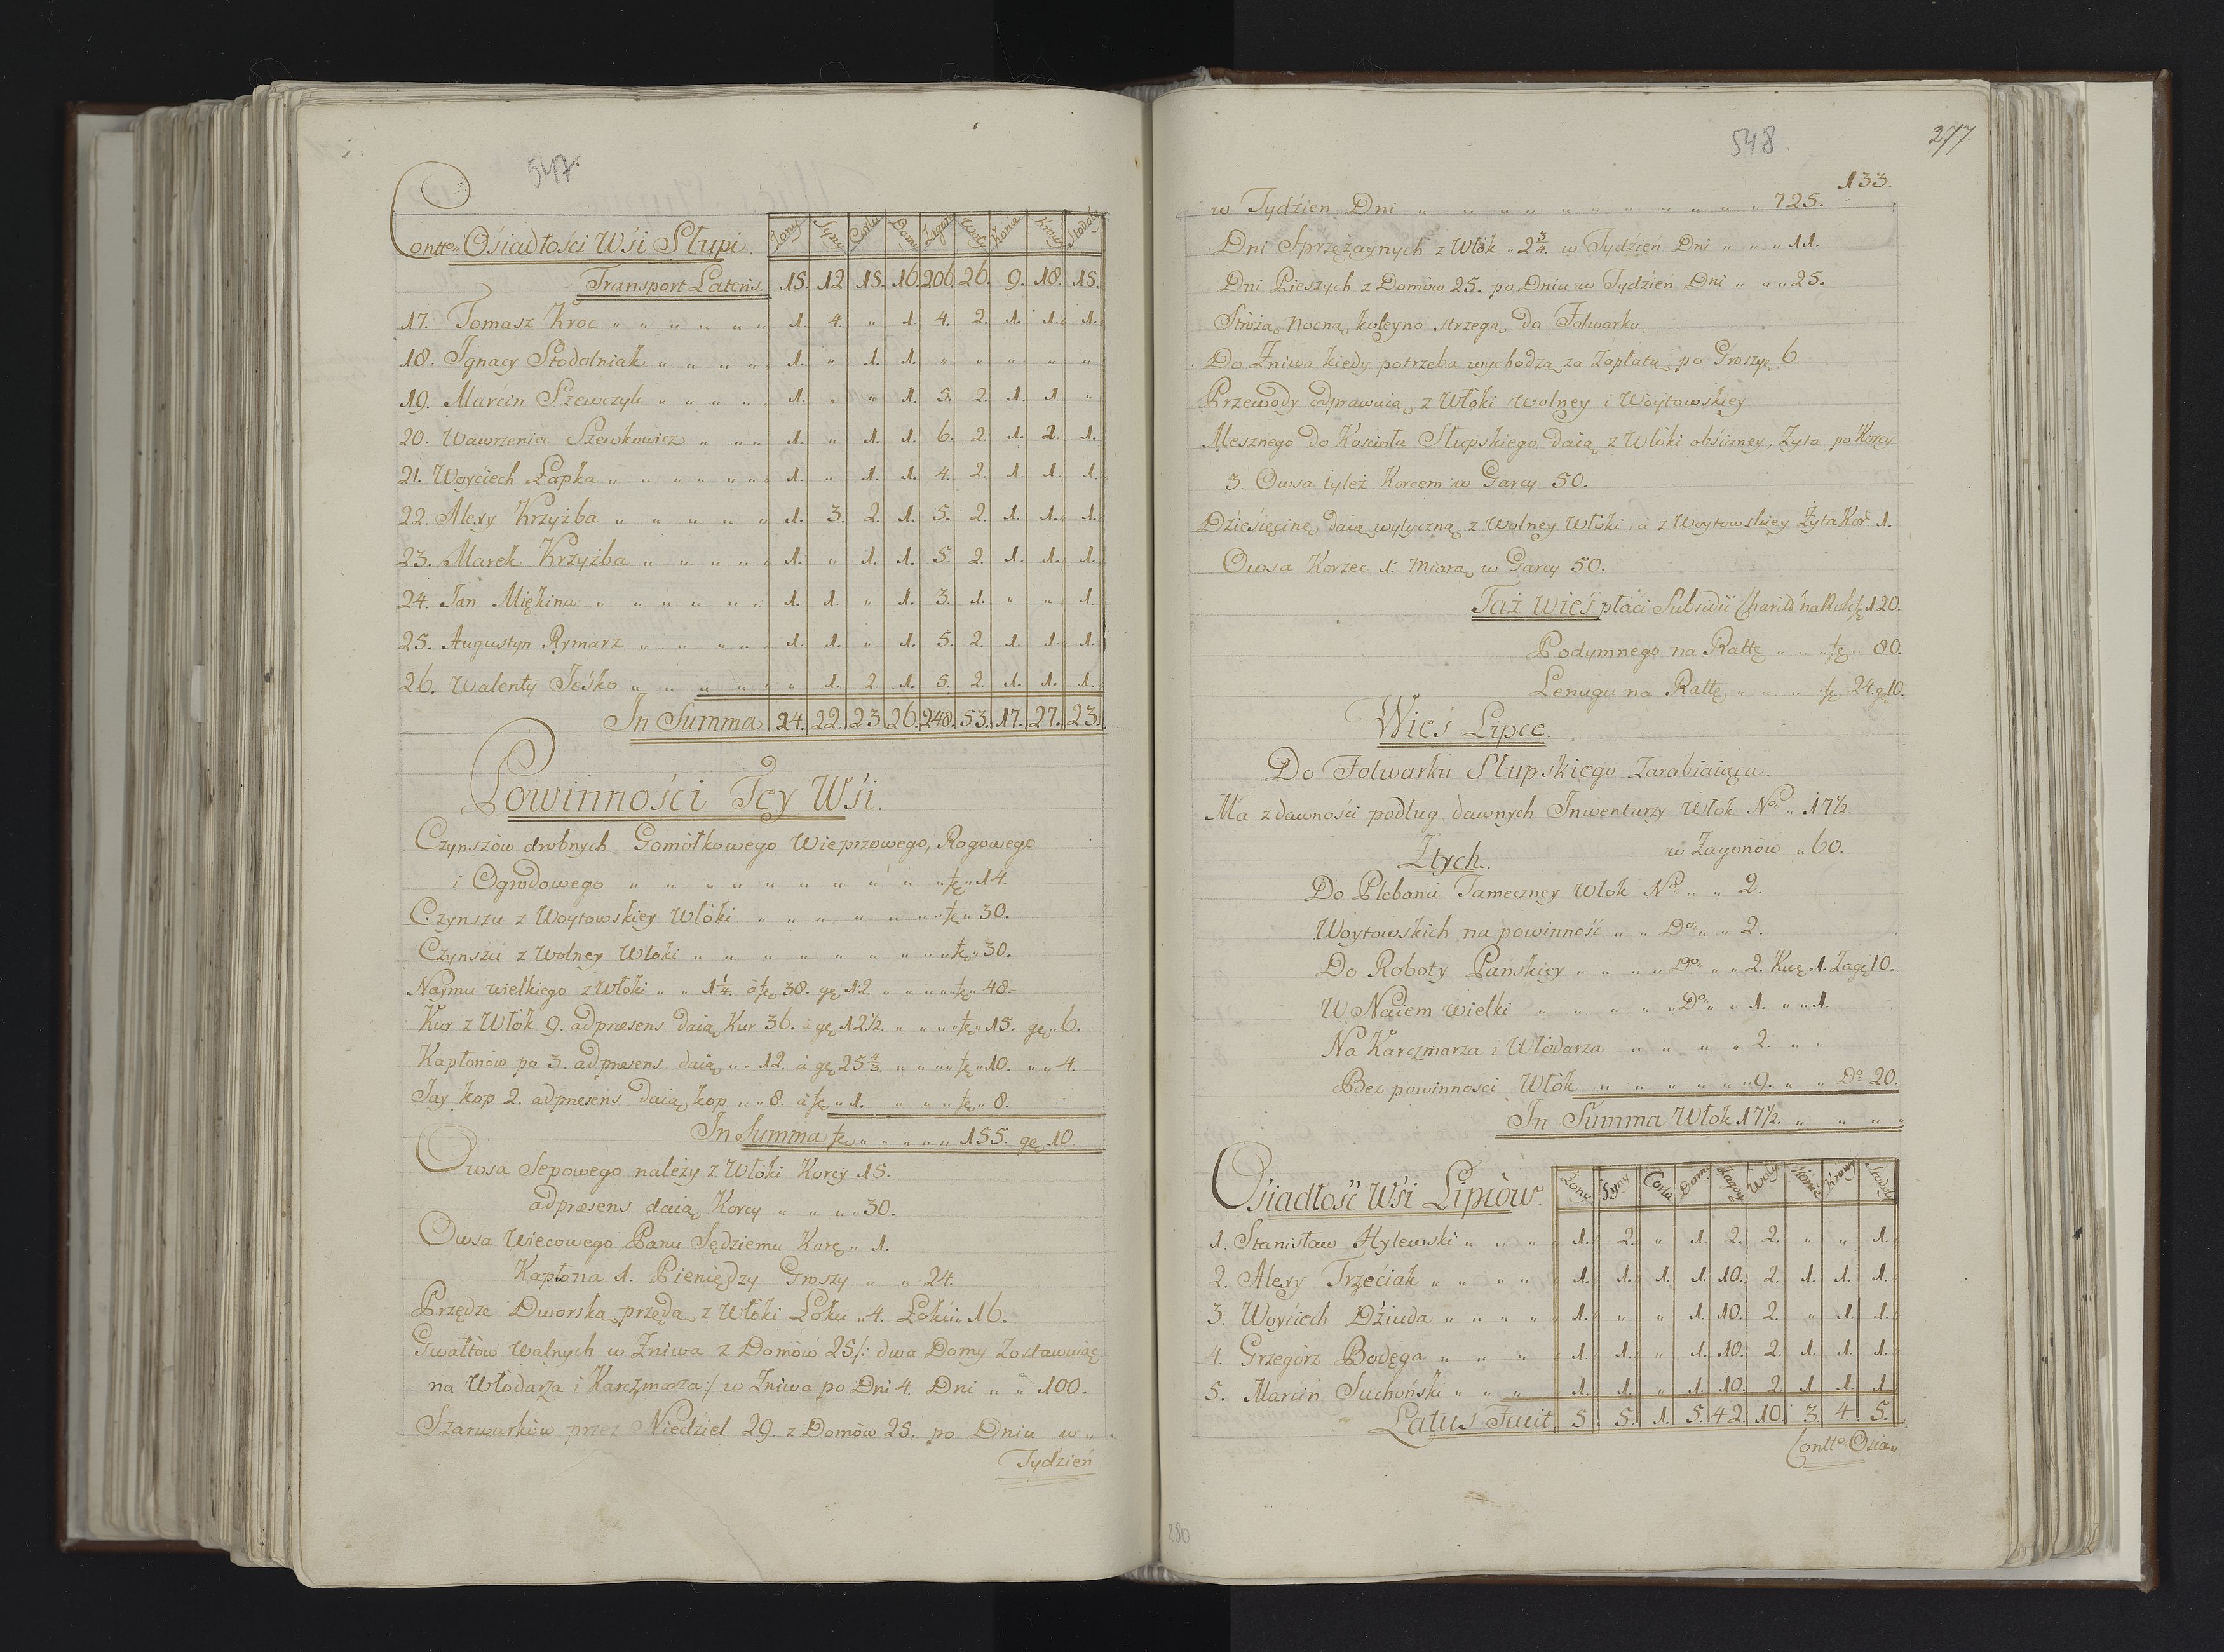 547.
Contto Osiadłości Wśi Słupi. Żony Syny Corki Domy Zagony Woły Konie Krowy Stodoły
Transport Lateris. 15. 12 15. 16. 206. 26. 9. 18. 15.
17. Tomasz Kroc „ „ „ „ „ „ 1. 4. „ 1. 4. 2. 1. 1. 1.
18. Ignacy Stodolniak „ „ „ „ 1. „ 1. 1. „ „ „ „ „
19. Marcin Szewczyk „ „ „ „ „ 1. „ „ 1. 5. 2. 1. 1. „
20. Wawrzeniec Szewkowicz „ „ „ 1. „ 1. 1. 6. 2. 1. 2. 1.
21. Woyćiech Łapka „ „ „ „ „ „ 1. „ 1. 1. 4. 2. 1. 1. 1.
22. Alexy Krzyżba „ „ „ „ „ 1. 3. 2. 1. 5. 2. 1. 1. 1.
23. Marek Krzyżba „ „ „ „ „ 1. „ 1. 1. 5. 2. 1. 1. 1.
24. Jan Miękina „ „ „ „ „ „ 1. 1. „ 1. 3. 1. „ „ 1.
25. Augustyn Rymarz „ „ „ „ „ 1. 1. „ 1. 5. 2. 1. 1. 1.
26. Walenty Jeśko „ „ „ „ „ „ 1. 2. 1. 5. 2. 1. 1. 1.
In Summa 24. 22. 23. 26. 248. 53. 17. 27. 23.
Powinnośći Tey Wśi.
Czynszów drobnych Gomółkowego Wieprzowego, Rogowego
i Ogrodowego „ „ „ „ „ „ „ „ „ „ fę „ 14.
Czynszu z Woytowskiey Włóki „ „ „ „ „ „ „ fę „ 30.
Czynszu z Wolney Włoki „ „ „ „ „ „ „ „ „ fę „ 30.
Naymu wielkiego z Włoki „ „ 1¼. à fę 38. gę 12. „ „ „ „ fę „ 48.
Kur z Włók 9. adpræsens daią Kur 36. à gę 12½. „ „ „ „ fę „ 15. gę „ 6.
Kapłonów po 3. adpræsens daią „ „ 12. à gę 25⅘. „ „ „ „ fę „ 10. „ „ 4.
Jay kop 2. adpræsens daią kop „ „ 8. à fę „ 1. „ „ „ fę „ 8.
In Summa fę „ „ „ „ „ 155. gę 10.
Owsa Sepowego należy z Włóki Korcy 15.
adpræsens daią Korcy „ „ „ „ 30.
Owsa Wiecowego Panu Sędziemu Korę „ 1.
Kapłona 1. Pieniędzy Groszy „ „ 24.
Przędze Dworską przędą z Włóki Łoku „ 4. Łokći „ 16.
Gwałtów Walnych w Żniwa z Domów 25/: dwa Domy Zostawuiąc
na Włodarza i Karczmarza:/ w Żniwa po Dni 4. Dni „ „ 100.
Szarwarków przez Niedziel 29. z Domów 25. po Dniu w „
Tydźień
548.
277.
133.
w Tydźien Dni „ „ „ „ „ „ „ „ „ „ „ 725.
Dni Sprzężaynych z Włók „ 2¾. w Tydźień Dni „ „ „ 11.
Dni Pieszych z Domów 25. po Dniu w Tydźień Dni „ „ „ 25.
Stróżą Nocną koleyno strzegą do Folwarku.
Do Żniwa kiedy potrzeba wychodzą za Zapłatą po Groszy 6.
Przewody odprawuią z Włóki Wolney i Wòytowskiey.
Mesznego do Kośćioła Słupskiego daią z Włóki obśianey, Żyta po Korcy
3. Owsa tyleż Korcem w Garcy 50.
Dźieśięćinę daią wytyczną z Wolney Włóki, a z Woytowskiey Żyta Kor. 1.
Owsa Korzec 1. miarą w Garcy 50.
Taż Wieś płaći Subsidii Charitt: na Rok fę 120.
Podymnego na Rattę „ „ „ fę „ 80.
Lenugu na Rattę „ „ „ fę 24. gę 10.
Wieś Lipce.
Do Folwarku Słupskiego Zarabiaiąca.
Ma zdawnośći podług dawnych Inwentarzy Włok No „ 17½.
w Zagonów „ 60.
Ztych.
Do Plebanii Tameczney Włok No „ „ 2.
Woytowskich na powinność „ „ Do „ „ 2.
Do Roboty Panskiey „ „ „ „ Do „ „ 2. Kwę. 1. Zagę 10.
W Naiem wielki „ „ „ „ „ Do „ „ 1. „ „ 1.
Na Karczmarza i Włodarza „ „ „ „ 2. „ „
Bez powinnosci Włók „ „ „ „ „ „ 9. „ „ Do 20.
In Summa Włok 17½. „ „ „ „
Osiadłość Wśi Lipiòw. Żony Syny Corki Domy Zagony Woły Konie Krowy Stodoły
1. Stanisław Hylewski „ „ „ „ 1. 2. „ 1. 2. 2. „ „ 1.
2. Alexy Trzećiak „ „ „ „ „ 1. 1. 1. 1. 10. 2. 1. 1. 1.
3. Woyćiech Dźiuda „ „ „ „ „ 1. „ „ 1. 10. 2. „ 1. 1.
4. Grzegórz Bodęga „ „ „ „ 1. 1. „ 1. 10. 2. 1. 1. 1.
5. Marcin Suchoński „ „ „ 1. 1. „ 1. 10. 2. 1. 1. 1.
Latus Facit 5. 5. 1. 5. 42. 10. 3. 4. 5.
Contto Osia„
280